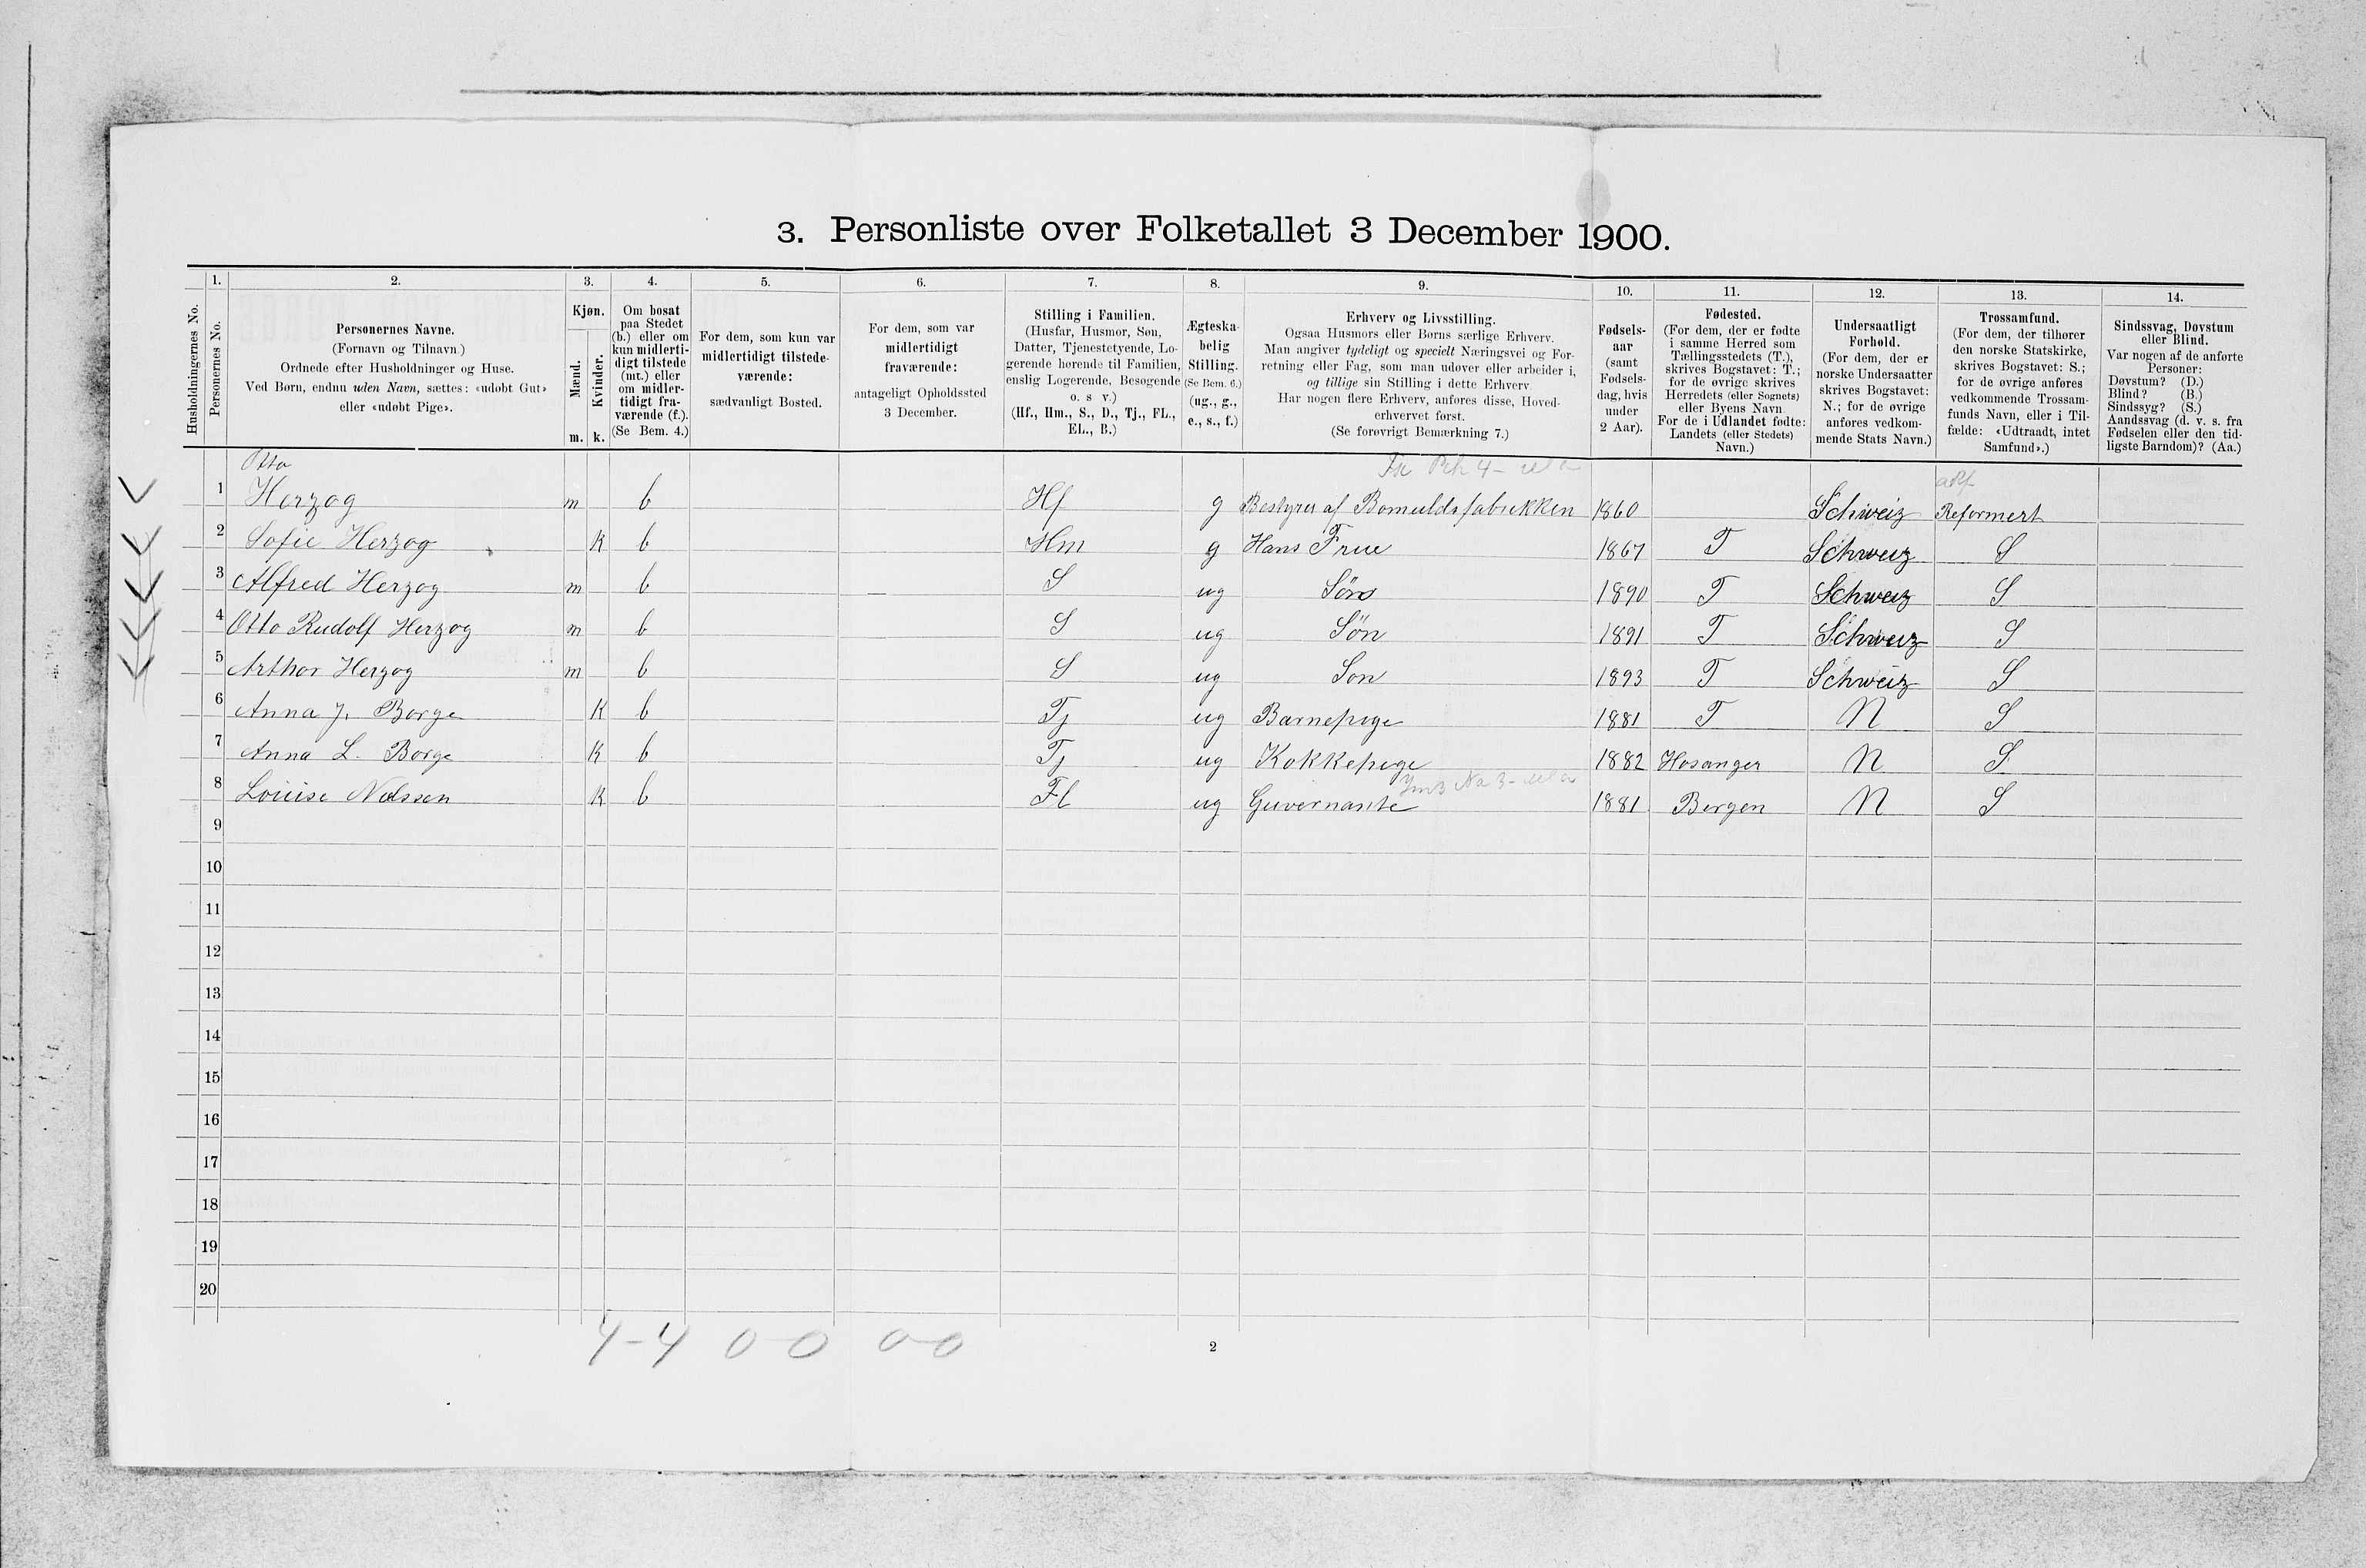 3. Personliste over Folketallet 3 December 1900.
Husholdningernes No.
1.
Personernes No.
2.
Personernes Navne.
(Fornavn og Tilnavn.)
Ordnede efter Husholdninger og Huse.
Ved Børn, endnu uden Navn, sættes: «udøbt Gut»
eller «udøbt Pige».
3.
Kjøn.
Mænd.
Kvinder.
m. k.
4.
Om bosat
paa Stedet
(b.) eller om
kun midlerti-
digt tilstede
(mt.) eller
om midler-
tidigt fra-
værende (f.).
(Se Bem. 4.)
5.
For dem, som kun var
midlertidigt tilstede-
værende:
sædvanligt Bosted.
6.
For dem, som var
midlertidigt
fraværende:
antageligt Opholdssted
3 December.
7.
Stilling i Familien.
(Husfar, Husmor, Søn,
Datter, Tjenestetyende, Lo-
gerende hørende til Familien,
enslig Logerende, Besøgende
o. s v.)
(Hf., Hm., S., D., Tj., FL.,
EL., B.)
8.
Ægteska-
belig
Stilling.
(Se Bem. 6.)
(ug., g.,
e., s., f.)
9.
Erhverv og Livsstilling.
Ogsaa Husmors eller Børns særlige Erhverv.
Man angiver tydeligt og specielt Næringsvei og For-
retning eller Fag, som man udøver eller arbeider i,
og tillige sin Stilling i dette Erhverv.
Har nogen flere Erhverv, anføres disse, Hoved-
erhvervet først.
(Se forøvrigt Bemærkning 7.)
10.
Fødsels-
aar
(samt
Fødsels-
dag, hvis
under
2 Aar).
11.
Fødested.
(For dem, der er fødte
i samme Herred som
Tællingsstedets (T.),
skrives Bogstavet: T.;
for de øvrige skrives
Herredets (eller Sognets)
eller Byens Navn
For de i Udlandet fødte:
Landets (eller Stedets)
Navn.)
12.
Undersaatligt
Forhold.
(For dem, der er
norske Undersaatter
skrives Bogstavet:
N.; for de øvrige
anføres vedkom-
mende Stats Navn.)
13.
Trossamfund.
(For dem, der tilhører
den norske Statskirke,
skrives Bogstavet: S.;
for de øvrige anføres
vedkommende Trossam-
funds Navn, eller i Til-
fælde: «Udtraadt, intet
Samfund».)
14.
Sindssvag, Døvstum
eller Blind.
Var nogen af de anførte
Personer:
Døvstum? (D.)
Blind? (B.)
Sindssyg? (S.)
Aandssvag (d. v. s. fra
Fødselen eller den tid-
ligste Barndom)? (Aa.)
Otto
1 Herzog m b Hf g Bestyrer af Bomuldsfabrikken 1860 Schweiz Reformert
2 Sofie Herzog K b Hm g Hans Frue 1867 T Schweiz S
3 Alfred Herzog m b S ug Søn 1890 T Schweiz S
4 Otto Rudolf Herzog m b S ug Søn 1891 T Schweiz S
5 Arthor Herzog m b S ug Son 1893 T Schweiz S
6 Anna J. Borge K b Tj ug Barnepige 1881 T N S
7 Anna L. Borge K b Tj ug Kokkepige 1882 Hosanger N S
8 Louise Nilssen K b Fl ug Guvernante 1881 Bergen N S
9
10
11
12
13
14
15
16
17
18
19
20
4-4 0-0 0-0
2